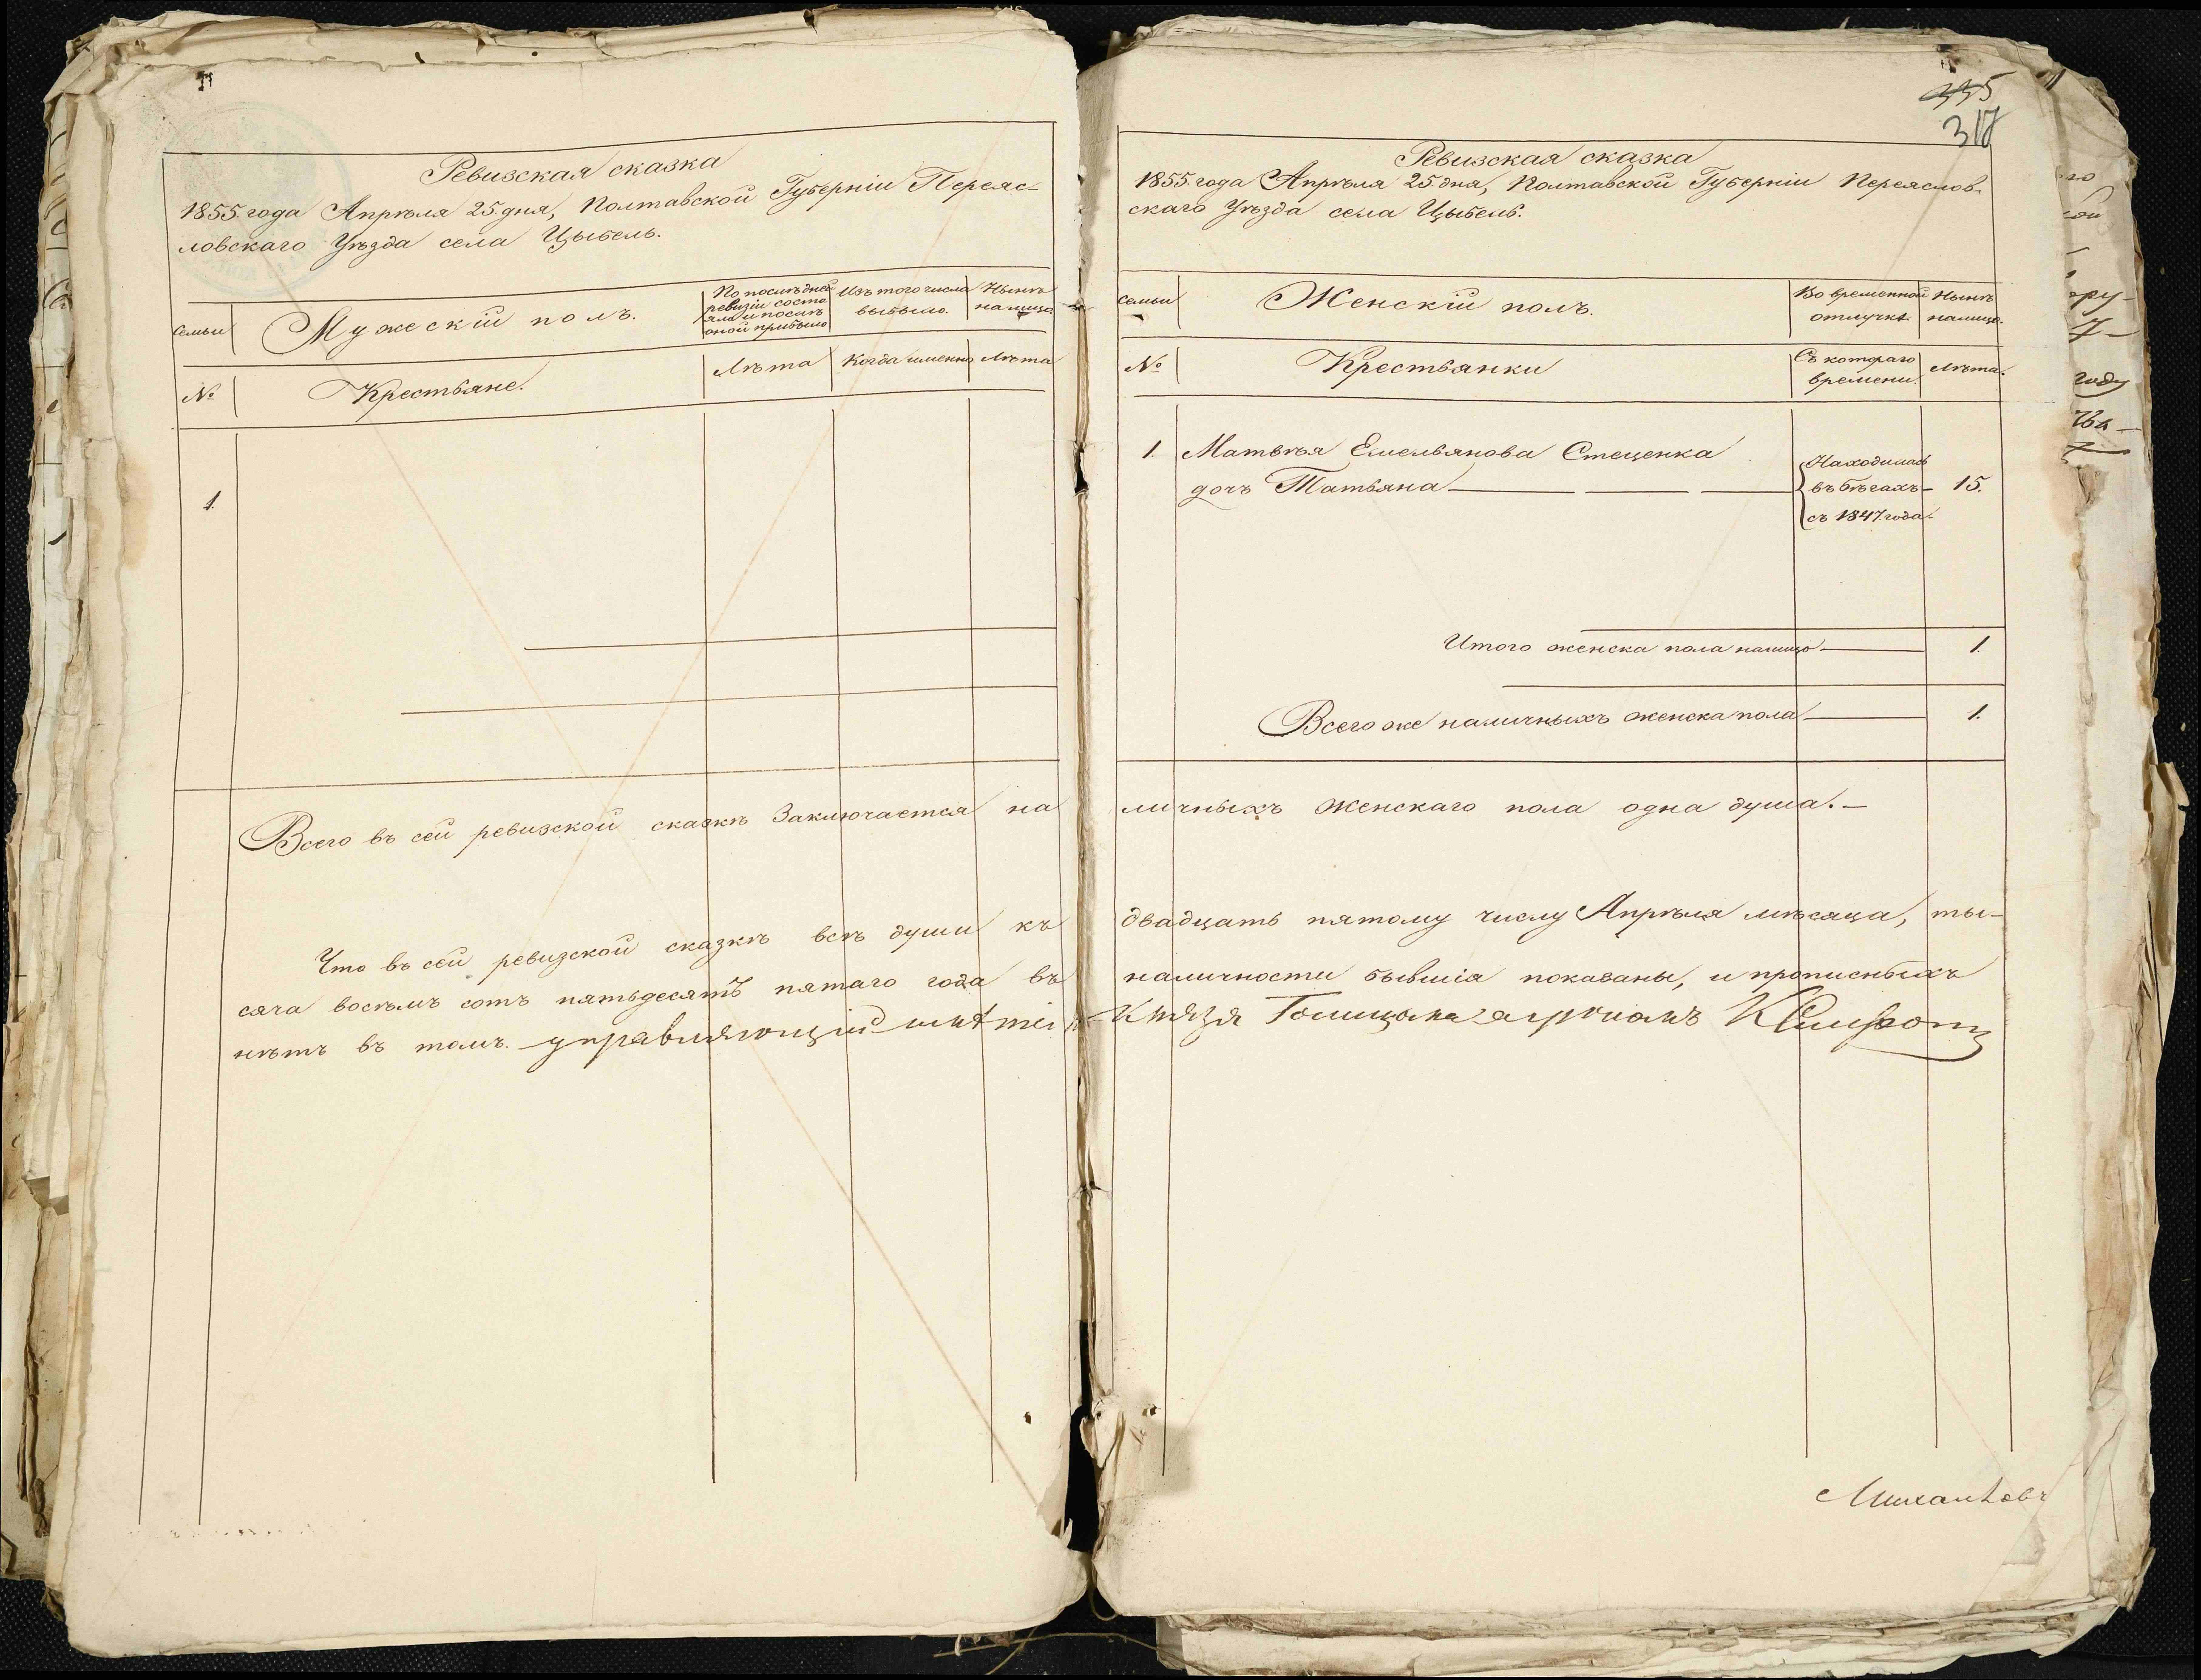 Ревизская сказка
1855. года Апрѣля 25 дня, Полтавской Губерніи Переяс-
ловскаго Уѣзда села Цыбель.
Семьи
Мужескій полъ.
По послѣдней
ревизіи состо
яло и послѣ
оной прибыло
Изъ того числа
выбыло.
Нынѣ
налицо
№
Крестьяне.
Лѣта
Когда именно
Лѣта
1.
Всего въ сей ревизской сказкѣ Заключается на
Что въ сей ревизской сказкѣ всѣ души къ
сяча восѣмъ сотъ пятьдесятъ пятаго года въ
нѣтъ въ томъ. управляющій
335
317
Ревизская сказка
1855. года Апрѣля 25 дня, Полтавской Губерніи Переяслов-
скаго Уѣзда села Цыбель.
Семьи
Женскій полъ.
Во временной
отлучкѣ
Нынѣ
налицо.
№
Крестьянки
Съ котораго
времени.
Лѣта.
1. Матвѣя Емельянова Стеценка
дочъ Татьяна
Находилась
въ бѣгахъ
съ 1847. года.
15.
Итого женска пола налицо 1.
Всего же наличныхъ женска пола 1.
личныхъ Женскаго пола одна душа.
двадцать пятому числу Апрѣля мѣсяца, ты-
наличности бывшіа показаны, и прописныхъ
Князя Голицына агрономъ